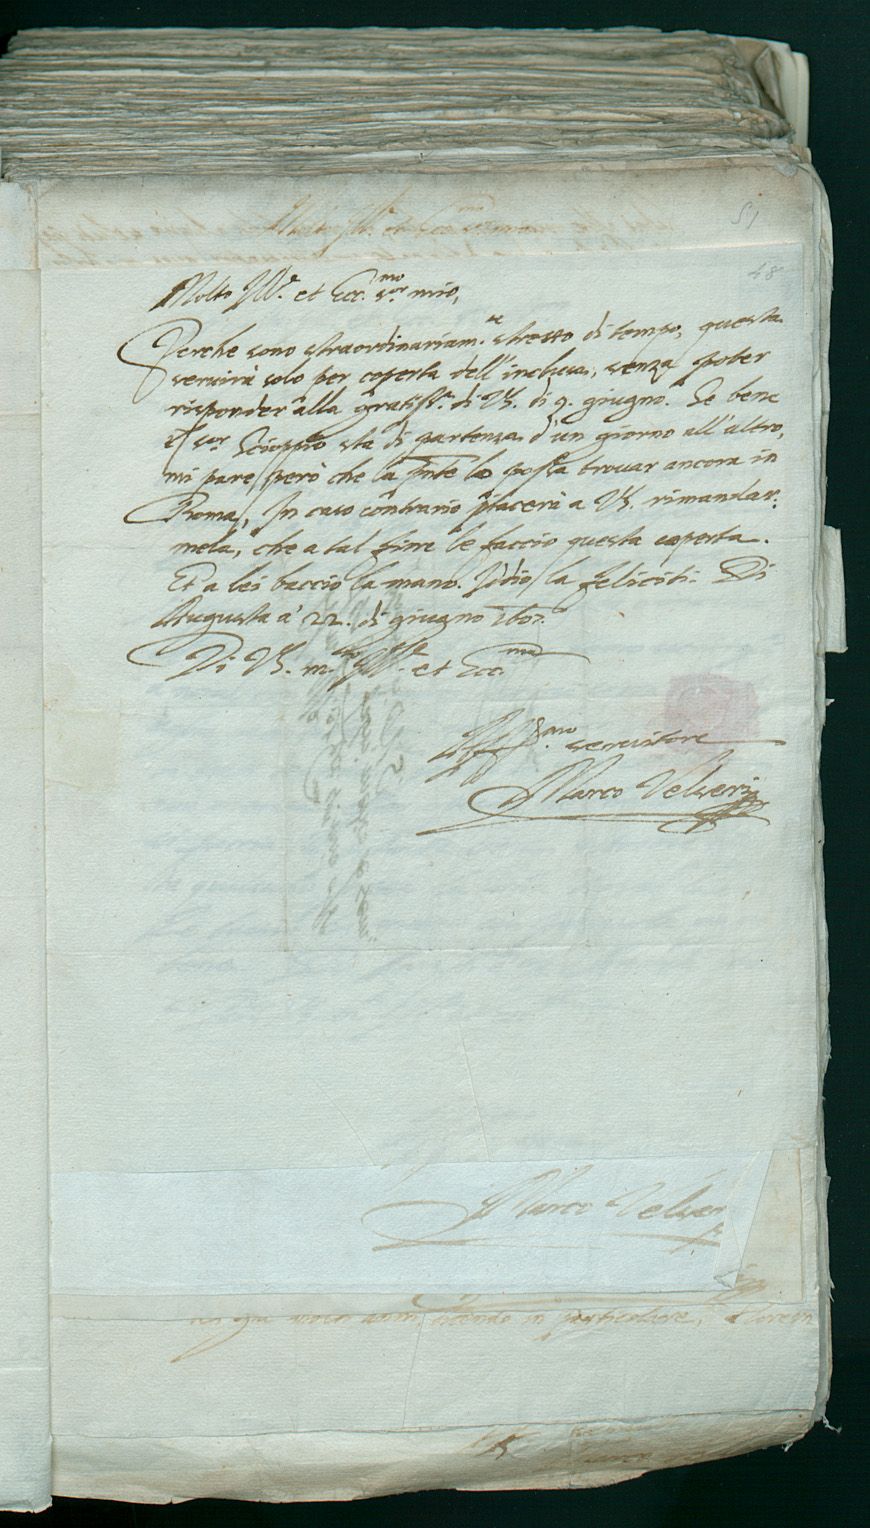 51
48
Molto Ill.e et Ecc.mo s.or mio,
Perche sono straordinariam.te stretto di tempo, questa
servirà solo per coperta dell'inclusa, senza poter
risponder alla gratiss.a di VS. di 9. giugno. Se bene
il s.or Scioppio sta di partenza d'un giorno all'altro,
mi pare però che la pnte lo possa trovar ancora in
Roma, In caso contrario piacerà a VS. rimandar-
mela, che a tal fine le faccio questa coperta.
Et a lei baccio la mano. Iddio la feliciti. Di
Augusta a' 22. di giugno 1607.
Di VS. m.to Ill.e et Ecc.ma
Aff.mo servitore
Marco Velseri
Marco Velser
in particolare,